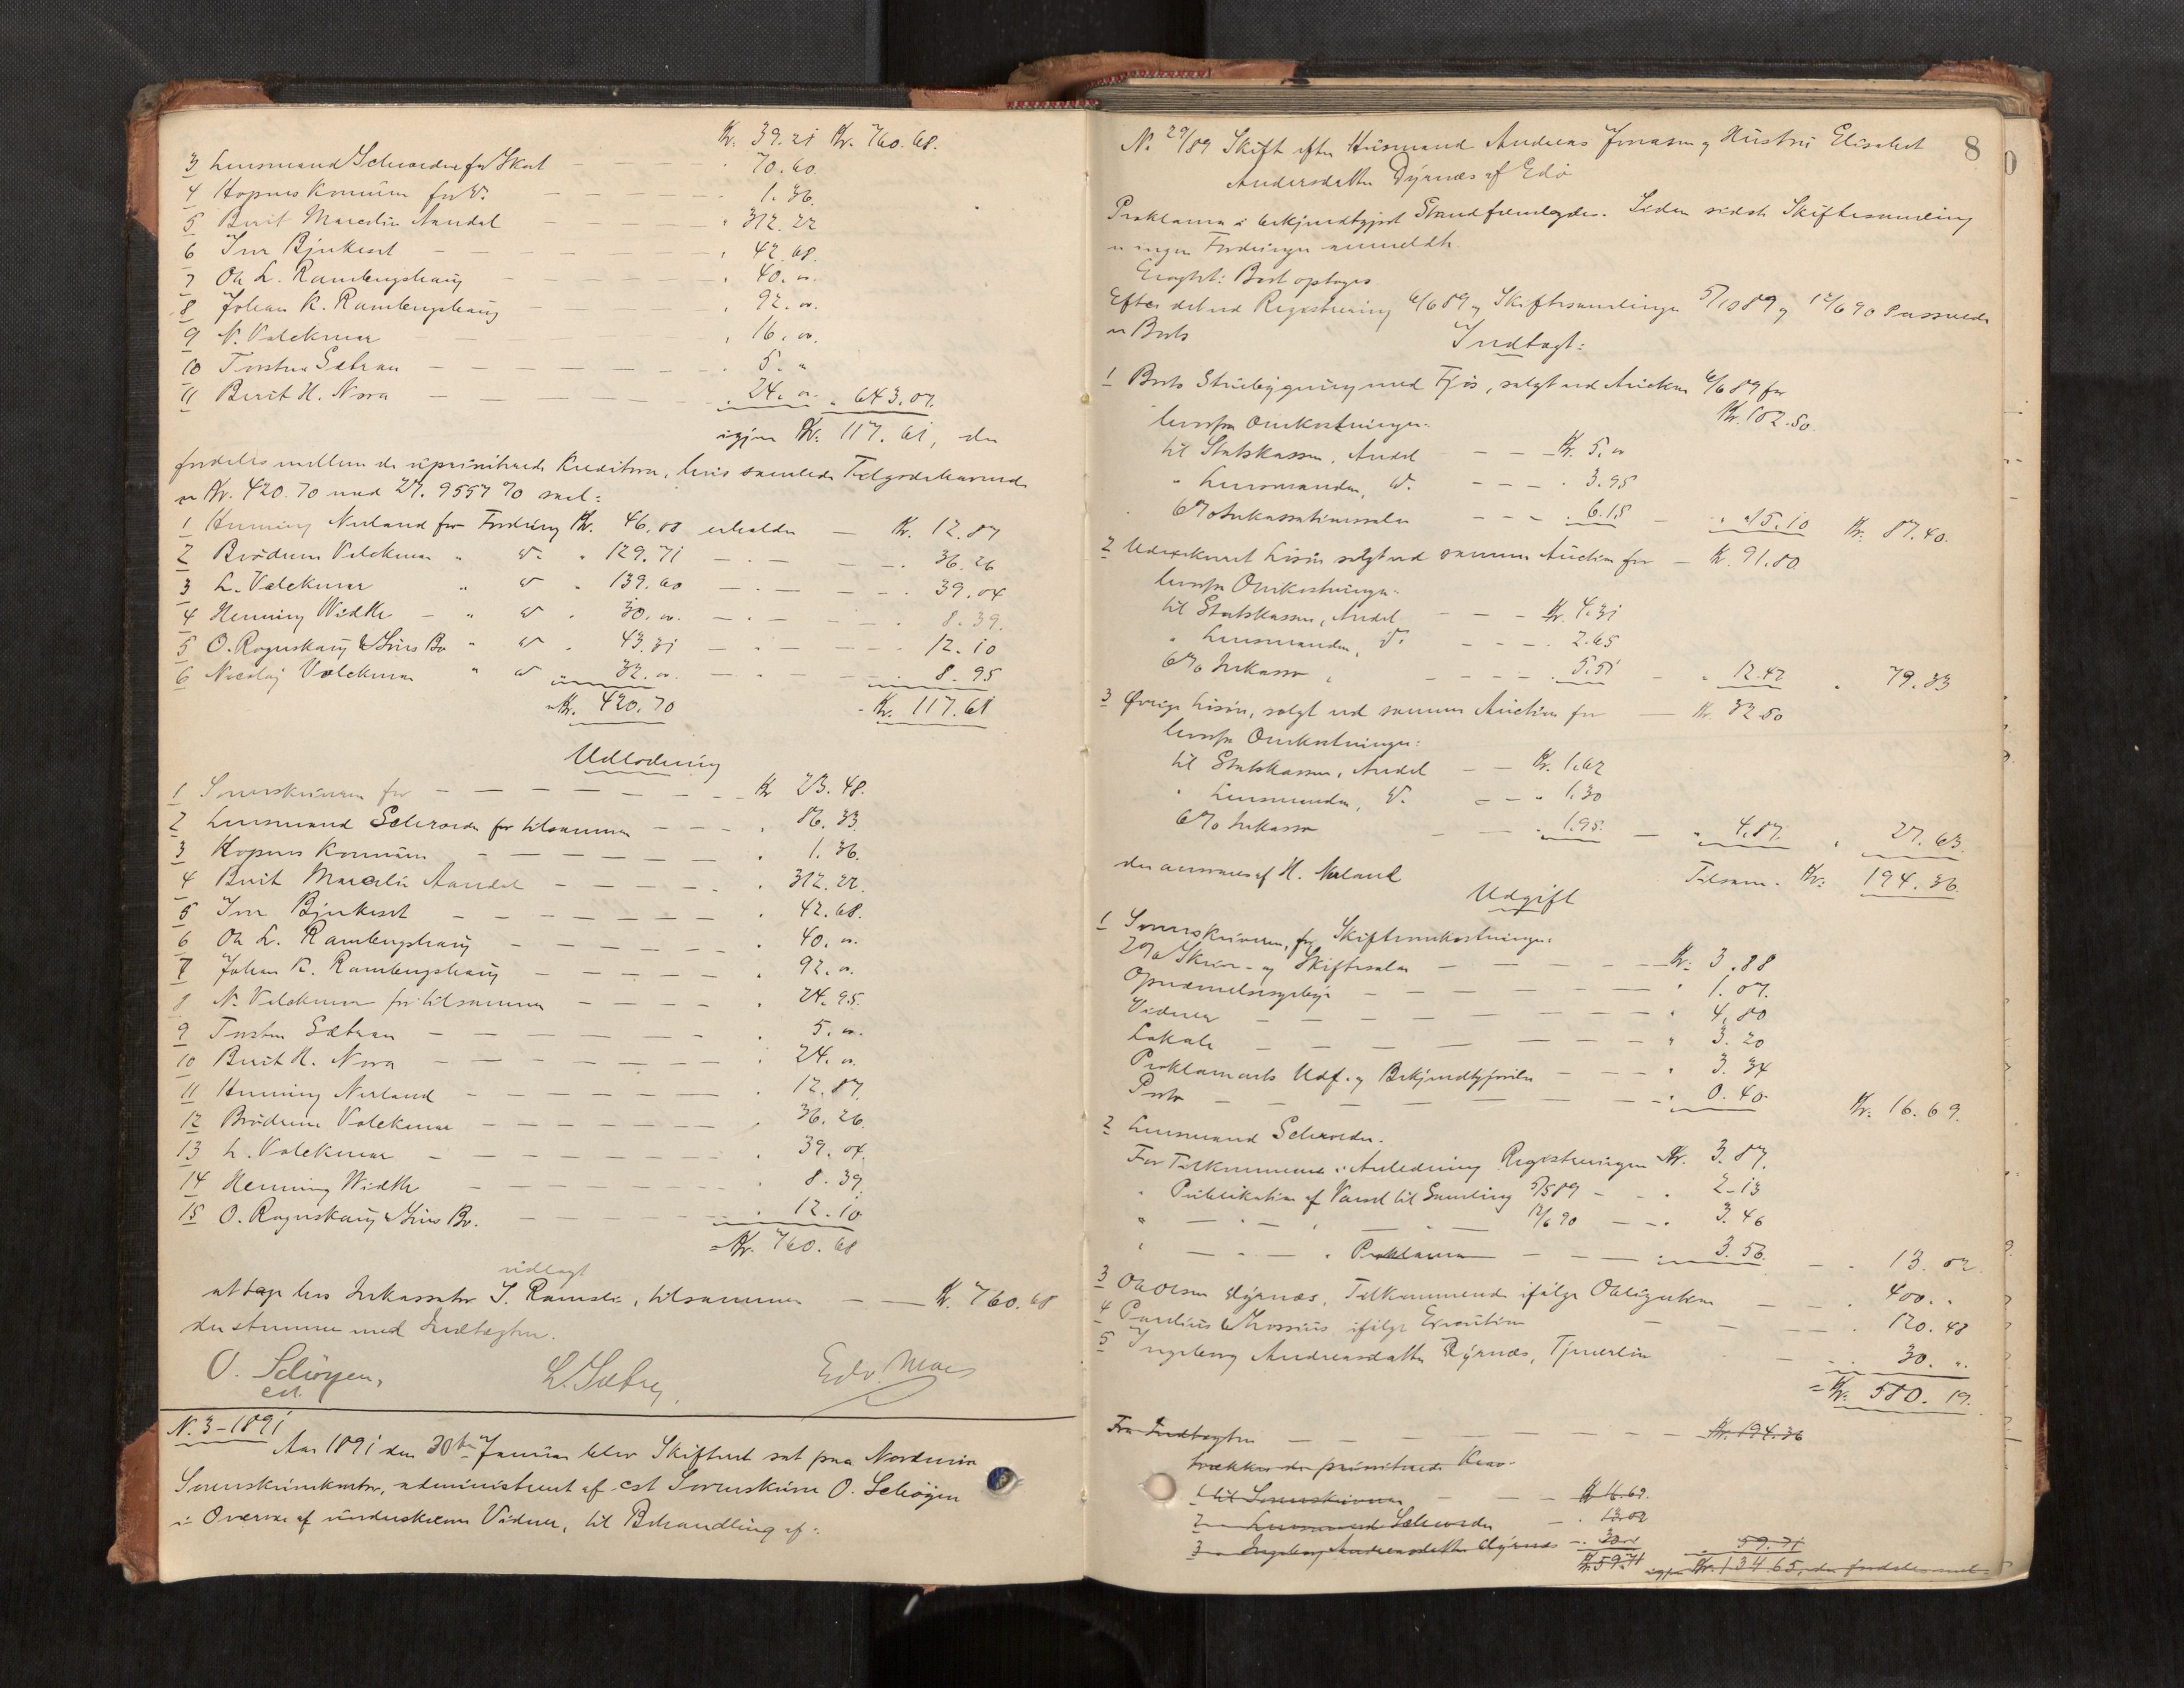 Kr. 39.21 Kr. 760.68.
3 Lensmand Schrøder for Skat — — 70.60.
4 Hopens Kommune for Do. — — — 1.36.
5 Berit Marcelie Aandal — — — 312.22
6 Iver Bjerkeset — — — 42.68.
7 Ole L. Rambergshaug — — — 40. "
8 Johan K. Rambergshaug — — 92. "
9 N. Volckmar — — — 16. "
10 Torsten Sætran — — — 5. "
11 Berit H. Nora — — — 24. " . 643.07.
igjen Kr. 117.61, der
fordeles mellem de uprioriterede Kreditorer, hvis samlede Tilgodehavende
er Kr. 420.70 med 27.9557 % saal:
1 Henning Nerland for Fordring Kr. 46.08 erholder — Kr. 12.87
2 Brødrene Volckmar " Do " 129.71 — — 36.26
3 L. Volckmar " Do " 139.60 — — 39.04
4 Henning Widthe " Do " 30. " — — 8.39.
5 O. Roguskaug & Søns Bo " Do " 43.31 — — 12.10
6 Nicolaj Volckmar " Do " 32. " — — 8.95
= Kr. 420.70 = Kr. 117.61
Udlodning
1 Sorenskriveren for — — — Kr. 73.48.
2 Lensmand Schrøder for tilsammen — — 86.33.
3 Hopens Kommune — — — 1.36.
4 Berit Marcelie Aandal — — — 312.22.
5 Iver Bjerkeset — — — 42.68.
6 Ole L. Rambergshaug — — — 40. "
7 Johan K. Rambergshaug — — — 92. "
8 N. Volckmar for tilsammen — — — 24.95.
9 Torsten Sætran — — — 5. "
10 Berit H. Nora — — — 24. "
11 Henning Nerland — — — 12.87.
12 Brødrene Volckmar — — — 36.26.
13 L. Volckmar — — — 39.04.
14 Henning Widthe — — — 8.39
15 O. Roguskaug & Søns Bo. — — — 12.10
= Kr. 760.68
vidlagt
at tage hos Inkassator I. Ramslie, tilsammen — — Kr. 760.68
der stemmer med Indtægten.
O. Schøyen,
cst.
L. Sæby.
Edv. Moes
N. 3 - 1891
Aar 1891 den 30te Januar blev Skifteret sat paa Nordmøre
Sorenskriverkontor, administreret af cst Sorenskriver O. Schøyen
i Overvær af underskrevne Vidner, til Behandling af:
8
N. 29/89 Skift efter Husmand Andreas Jonasen og Hustru Elisabet
Andersdatter Dyrnæs af Edø
Proklama i bekjendtgjort Stand fremlagdes. Siden sidste Skiftesamling
er ingen Fordringer anmeldte.
Eragtet: Boet optages
Efter det ved Registrering 6/6 89 og Skiftesamlinger 5/10 89 og 12/6 90 Passerede
er Boets
Indtægt:
1 Boets Stuebygning med Fjøs, solgt ved Auction 6/6 89 for
Kr. 102.50.
hvorfra Omkostninger:
til Statskassen, Andel — — Kr. 5. "
" Lensmanden, Do. — — — 3.95
6% Inkassationssalær — — . 6.15 — . 15.10 Kr. 87.40.
2 Udexekveret Løsøre solgt ved samme Auction for — Kr. 91.80.
hvorfra Omkostninger:
til Statskassen, Andel — — Kr. 4.31
" Lensmanden, Do. — — — 2.65
6% Inkasso — — — 5.51 — . 12.47 . 79.33
3 Øvrige Løsøre, solgt ved samme Auction for — Kr. 32.50
hvorfra Omkostninger:
til Statskassen, Andel — — Kr. 1.62
" Lensmanden, Do. — — " 1.30
6% Inkasso — — — 1.95. — . 4.87. . 27.63.
der ansvares af H. Nerland Tilsam. Kr. 194.36.
Udgift
1 Sorenskriveren, for Skifteomkostninger.
2% Skriver- og Skiftesalær — — — Kr. 3.88
Opnævnelsesgebyr — — — " 1.07.
Vidner — — — " 4.80
Lokale — — — " 3.20
Proklamaets Udf. og Bekjendtgjørelse — — — " 3.34
Porto — — — 0.40. Kr. 16.69.
2 Lensmand Schrøder.
For Tilkommende i Anledning Registreringen Kr. 3.87.
" Publikation af Varsel til Samling 5/5 89 — . 2.13
" — " — " — 12/6 90 — . 3.46
" — " — " Proklama — — — 3.56. — . 13.02
3 Ole Olsen Dyrnæs, Tilkommende ifølge Obligation — — . 400. "
4 Paulius Krossius ifølge Execution — — . 120.48
5 Ingeborg Andreasdatter Dyrnæs, Tjenerløn — — . 30. "
= Kr. 580.19.
Fra Indtægten — — — Kr. 194.36
trækkes de prioriterede Krav.
1 til Sorenskriveren — — Kr. 16.69.
2 — Lensmand Schrøder — . 13.02
3 — Ingeborg Andreasdatter Dyrnæs — . 30. " . 59.71
Kr. 59.71 igjen Kr. 134.65, der fordeles mel-